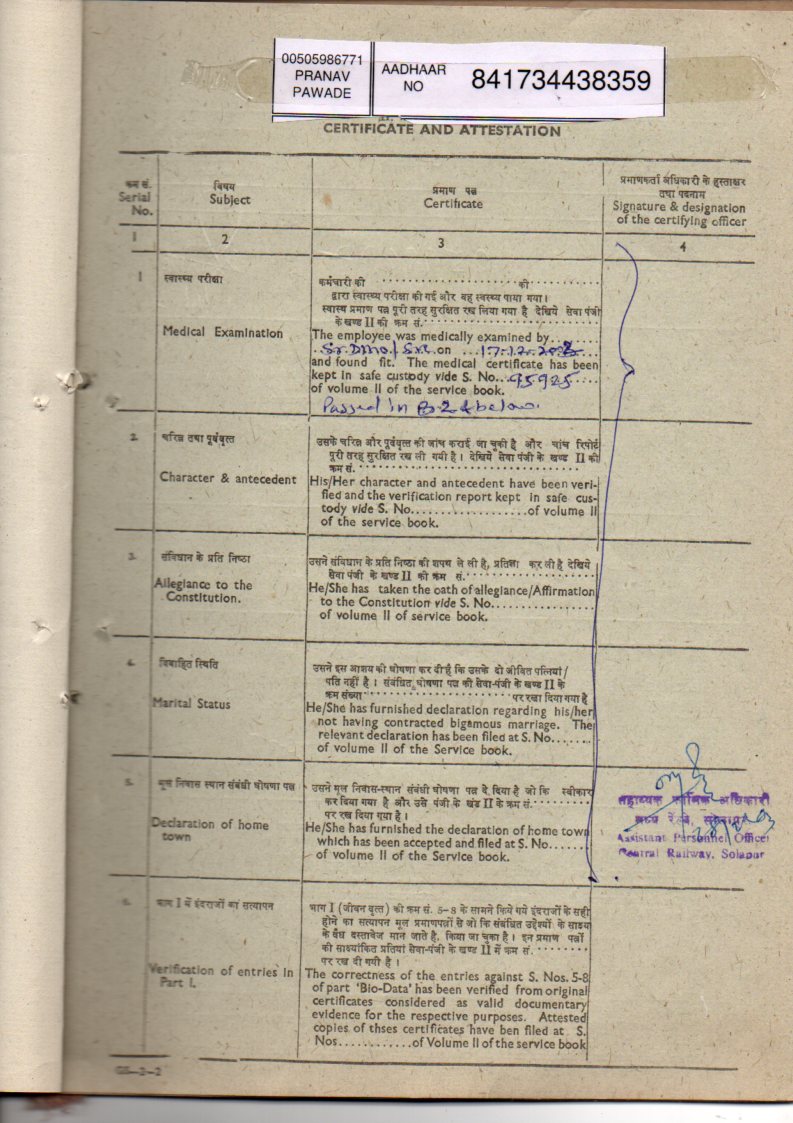 00505986771
PRANAV
PAWADE
AADHAAR
NO
841734438359
CERTIFICATE AND ATTESTATION
क्रम सं.
Serial
No.
विषय
Subject
प्रमाण पत्र
Certificate
प्रमाणकर्ता अधिकारी के हस्ताक्षर
तथा पदनाम
Signature & designation
of the certifying officer
1
2
3
4
1
स्वास्थ्य परीक्षा
Medical Examination
कर्मचारी की .................. की ..........
द्वारा स्वास्थ्य परीक्षा की गई और वह स्वस्थ्य पाया गया।
स्वास्थ प्रमाण पत्र पूरी तरह सुरक्षित रख लिया गया है देखिये सेवा पंजी
के खण्ड II की क्रम सं.
The employee was medically examined by........
Sr. DMO/ on 17.12.
and found fit. The medical certificate has been
kept in safe custody vide S. No... 95925
of volume II of the service book.
Passed in B-2 & below.
2.
चरित्र तथा पूर्ववृत्त
Character & antecedent
उसके चरित्र और पूर्ववृत्त की जांच कराई जा चुकी है और जांच रिपोर्ट
पूरी तरह सुरक्षित रख ली गयी है। देखिये सेवा पंजी के खण्ड II की
क्रम सं.
His/Her character and antecedent have been veri-
fied and the verification report kept in safe cus-
tody vide S. No..................of volume II
of the service book.
3.
संविधान के प्रति निष्ठा
Allegiance to the
Constitution.
उसने संविधान के प्रति निष्ठा की शपथ ले ली है, प्रतिज्ञा कर ली है देखिये
सेवा पंजी के खण्ड II की क्रम सं.
He/She has taken the oath of allegiance/Affirmation
to the Constitution vide S. No...............
of volume II of service book.
4.
विवाहित स्थिति
Marital Status
उसने इस आशय की घोषणा कर दी है कि उसके दो जीवित पत्नियां/
पति नहीं है। संबंधित घोषणा पत्र की सेवा-पंजी के खण्ड II के
क्रम संख्या .................. पर रखा दिया गया है
He/She has furnished declaration regarding his/her
not having contracted bigamous marriage. The
relevant declaration has been filed at S. No.......
of volume II of the Service book.
5.
मूल निवास स्थान संबंधी घोषणा पत्र
Declaration of home
town
उसने मूल निवास-स्थान संबंधी घोषणा पत्र दे दिया है जो कि स्वीकार
कर दिया गया है और उसे पंजी के खंड II के क्रम सं.
पर रख दिया गया है।
He/She has furnished the declaration of home town
which has been accepted and filed at S. No.......
of volume II of the Service book.
सहायक कार्मिक अधिकारी
मध्य रेलवे, सोलापूर
Assistant Personnel Officer
Central Railway, Solapur
6.
भाग I में इंदराजों का सत्यापन
Verification of entries in
Part I.
भाग I (जीवन वृत्त) की क्रम सं. 5-8 के सामने किये गये इंदराजों के सही
होने का सत्यापन मूल प्रमाणपत्रों से जो कि संबंधित उद्देश्यों के साक्ष्य
के वैध दस्तावेज मान जाते है, किया जा चुका है। इन प्रमाण पत्रों
की साक्ष्यांकित प्रतियां सेवा-पंजी के खण्ड II में क्रम सं.
पर रख दी गयी है।
The correctness of the entries against S. Nos. 5-8
of part 'Bio-Data' has been verified from original
certificates considered as valid documentary
evidence for the respective purposes. Attested
copies of thses certificates have ben filed at S.
Nos............of Volume II of the service book
GS-2-2